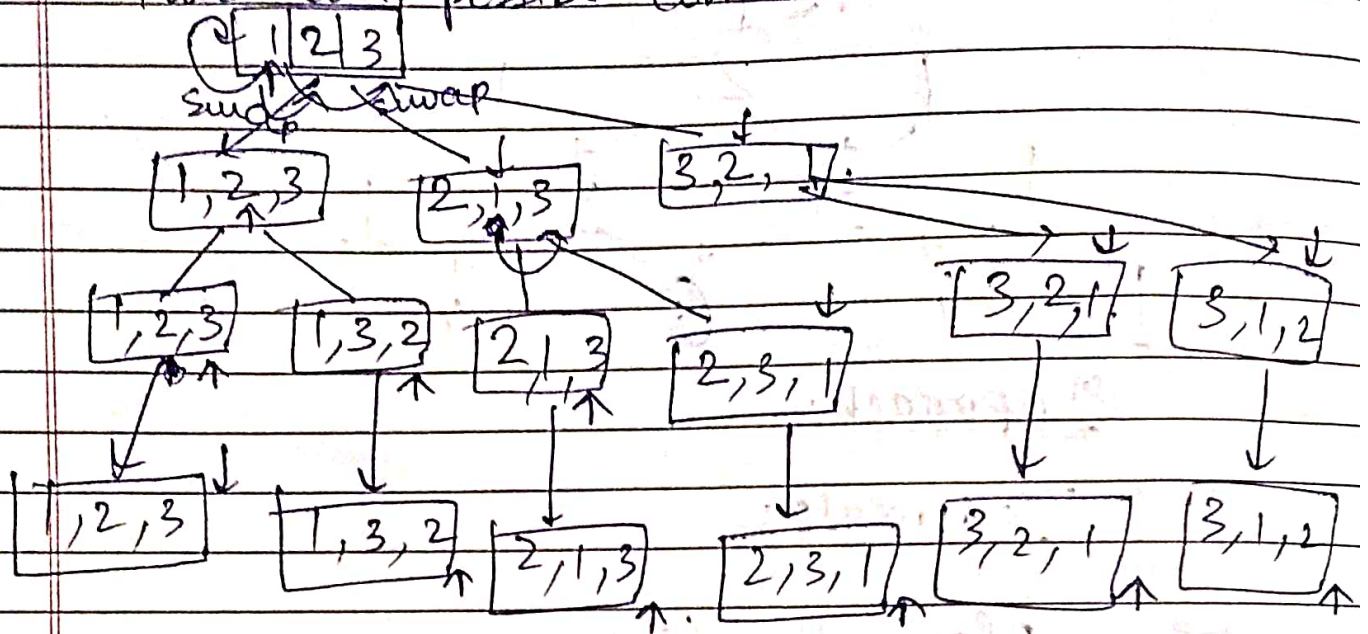 possible
1 2 3
swap swap
1,2,3 2,1,3 3,2,1
1,2,3 1,3,2 2,1,3 2,3,1 3,2,1 3,1,2
1,2,3 1,3,2 2,1,3 2,3,1 3,2,1 3,1,2